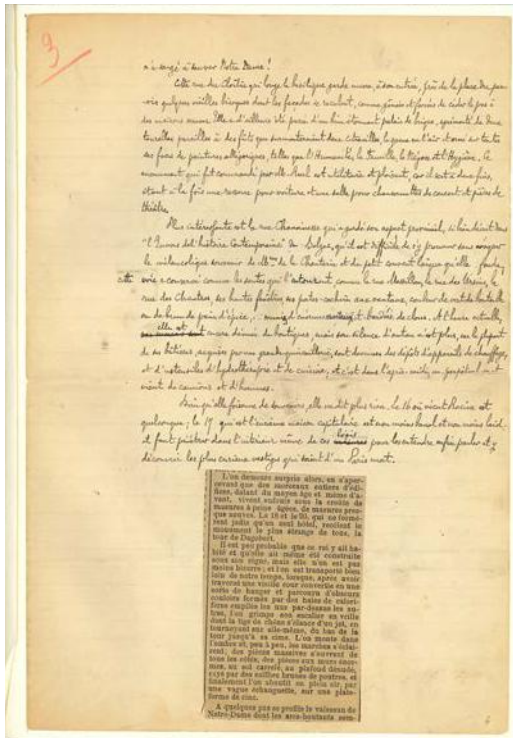 3
n'a songé à sauver Notre Dame!
Cette rue du Cloître qui longe la basilique garde encore, à son entrée, près de la place du par-
vis quelques vieilles bicoques dont les façades se reculent, comme
des maisons neuves. Elle a d'ailleurs été parée d'un bien étonnant palais de briques, surmonté de deux
tourelles pareilles à des fûts que surmonteraient deux citrouilles, la queue en l'air et orné sur toutes
ses faces de peintures allégoriques, telles que l'Humanité, la Famille, la Négoce et l'Hygiène. Ce
monument qui fut commandé par elle est utilitaire et plaisant, car il sert à deux fins,
étant à la fois une remise pour voitures et une salle pour chansonnettes de concert et pièces de
théâtre.
Plus intéressante est la rue Chanoinesse qui a gardé son aspect provincial, si bien décrit dans
"l'Envers de l'histoire Contemporaine" de Balzac, qu'il est difficile de s'y promener sans évoquer
le mélancolique souvenir de Mme de la Chanterie et du petit couvent laïque qu'elle fonda,
cette voie a conservé comme les sentes qui l'entourent, comme la rue Massillon, la rue des Ursins, la
rue des Chantres, ses hautes fenêtres, ses portes cochères aux vantaux, couleur de vert de bouteille
ou de brun de pain d'épice, et bardés de clous. A l'heure actuelle,
elle est encore dénuée de boutiques, mais son silence d'antan n'est plus, car la plupart
de ses bâtisses, acquises par une grande quincaillerie, sont devenues des dépôts d'appareils de chauffage,
et d'ustensiles d'hydrothérapie et de cuisine, et c'est dans l'après-midi, un perpétuel va et
vient de camions et d'hommes.
Bien qu'elle foisonne de souvenirs, elle ne dit plus rien. Le 16 où vécut Racine est
quelconque; le 17 qui est l'ancienne maison capitulaire est non moins banal et non moins laid.
il faut pénétrer dans l'intérieur même de ces logis pour les entendre enfin parler et y
découvrir les plus curieux vestiges qui soient d'un Paris mort.
L'on demeure surpris alors, en s'aper-
cevant que des morceaux entiers d'édi-
fices, datant du moyen âge et même d'a-
vant, vivent enfouis sous la croûte de
masures à peine âgées, de masures pres-
que neuves. Le 18 et le 20, qui ne formè-
rent jadis qu'un seul hôtel, recèlent le
monument le plus étrange de tous, la
tour de Dagobert.
Il est peu probable que ce roi y ait ha-
bité et qu'elle ait même été construite
sous son règne, mais elle n'en est pas
moins bizarre; et l'on est transporté bien
loin de notre temps, lorsque, après avoir
traversé une vieille cour convertie en une
sorte de hangar et parcouru d'obscurs
couloirs formés par des haies de calori-
fères empilés les uns par-dessus les au-
tres, l'on grimpe son escalier en vrille
dont la tige de chêne s'élance d'un jet, en
tournoyant sur elle-même, du bas de la
tour jusqu'à sa cime. L'on monte dans
l'ombre et, peu à peu, les marches s'éclai-
rent; des pièces massives s'ouvrent de
tous les côtés, des pièces aux murs énor-
mes, au sol carrelé, au plafond dénudé,
rayé par des saillies brunes de poutres, et
finalement l'on aboutit en plein air, par
une vague échauguette, sur une plate-
forme de zinc.
A quelques pas se profile le vaisseau de
Notre-Dame dont les arcs-boutants sem-